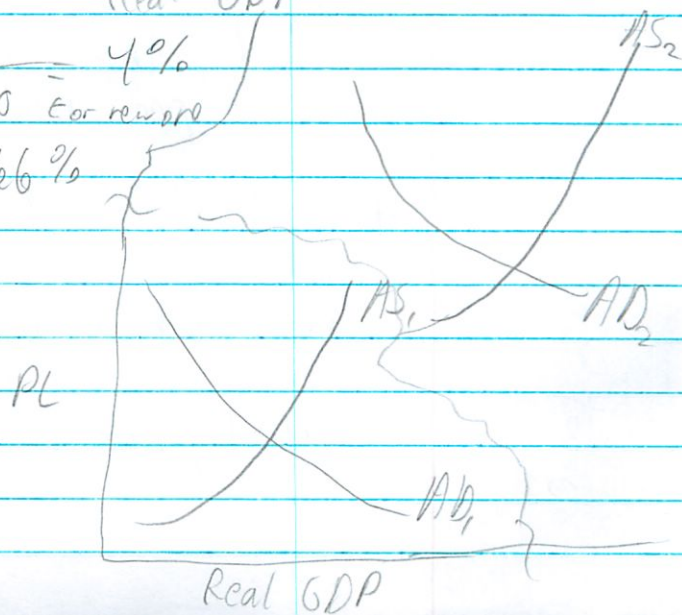 Real GDP
AS₂
= 4%
For reward
26%
AS₁
AD₂
PL
AD₁
Real GDP